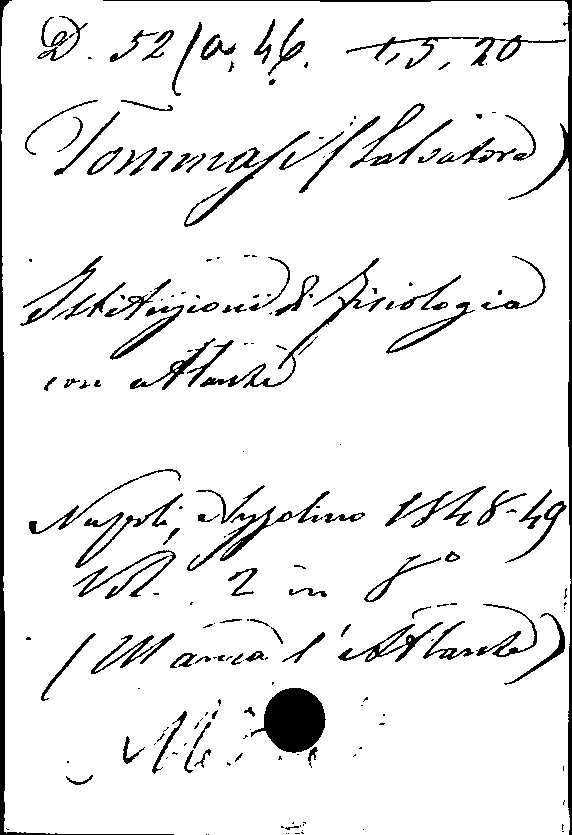 D. 52/a. 46. 1, 5, 20
Tommasi (Salvatore)
Istituzioni di fisiologia
con atlante
Napoli, Azzolino 1848-49
Vol. 2 in 8°
(Manca l'Atlante)